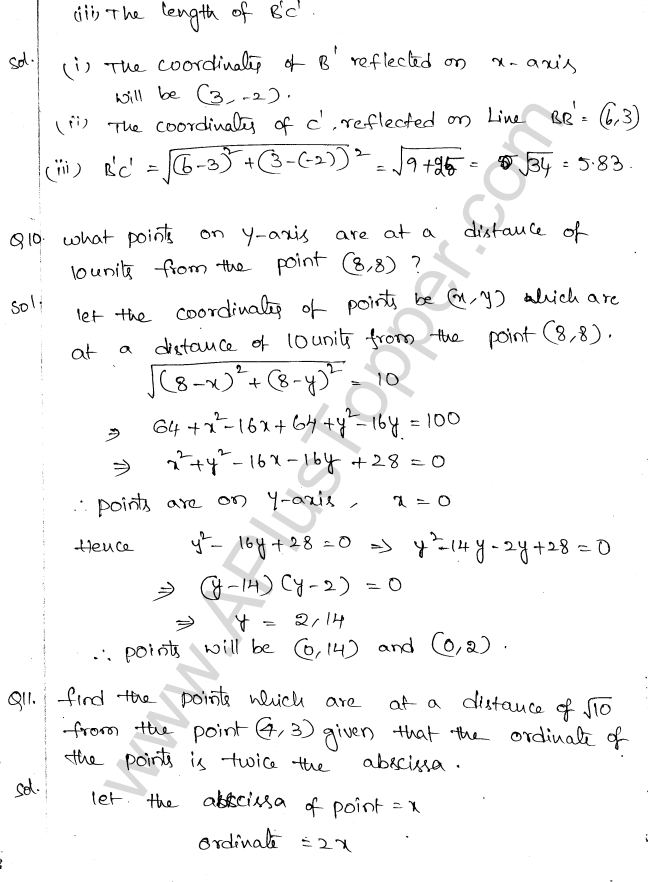 (iii) The length of B'C'.
Sol. (i) The coordinates of B' reflected on x-axis
will be (3,-2).
(ii) The coordinates of C', reflected on Line BB' = (6,3)
(iii) B'C' = √((6-3)² + (3-(-2))²) = √(9+25) = √34 = 5.83.
Q10. what points on y-axis are at a distance of
10 units from the point (8,8) ?
Sol. let the coordinates of points be (x,y) which are
at a distance of 10 units from the point (8,8).
√((8-x)² + (8-y)²) = 10
⇒ 64+x²-16x+64+y²-16y = 100
⇒ x²+y²-16x-16y+28 = 0
∴ points are on y-axis, x = 0
Hence y²-16y+28=0 ⇒ y²-14y-2y+28=0
⇒ (y-14)(y-2) = 0
⇒ y = 2,14
∴ points will be (0,14) and (0,2).
Q11. find the points which are at a distance of √10
from the point (4,3) given that the ordinate of
the points is twice the abscissa.
Sol. let the abscissa of point = x
ordinate = 2x
www.APlusTopper.com